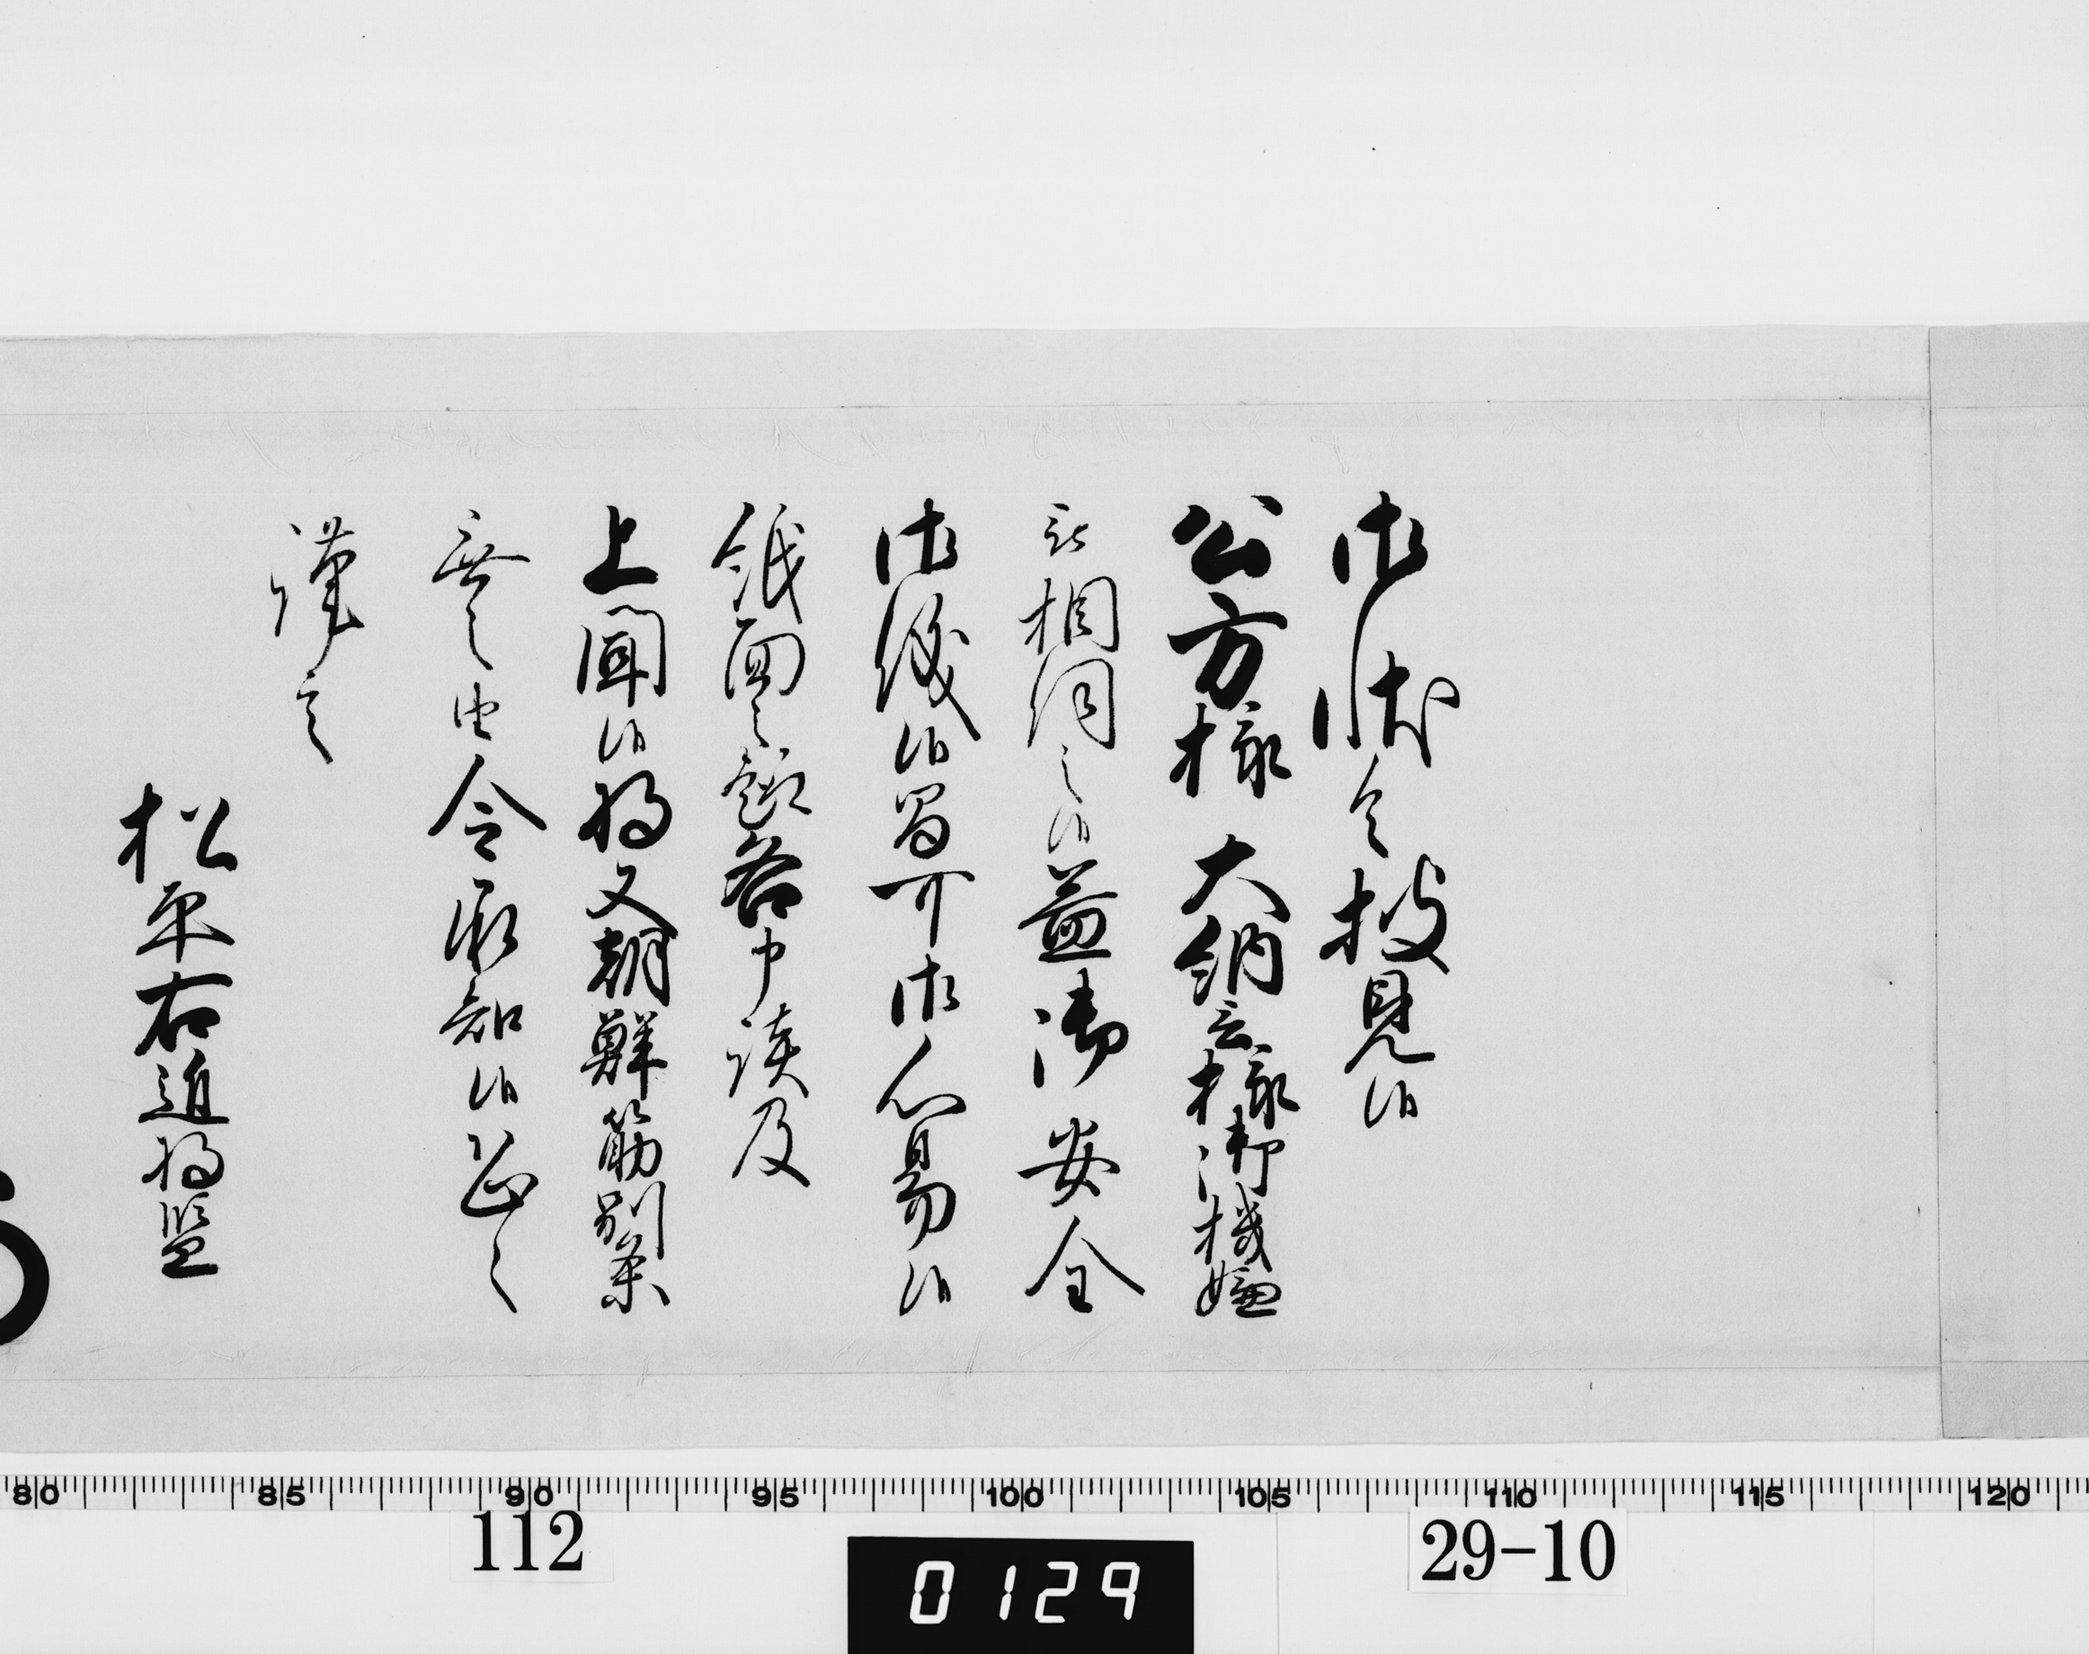 御状令披見候
公方様 大納言様御機嫌
被相伺之候益御安全
御儀候間可御心易候
紙面之趣各申談及
上聞候将又朝鮮筋別条
無之由令承知候恐々
謹言
松平右近将監
80 85 90 95 100 105 110 115 120
112
29-10
0129